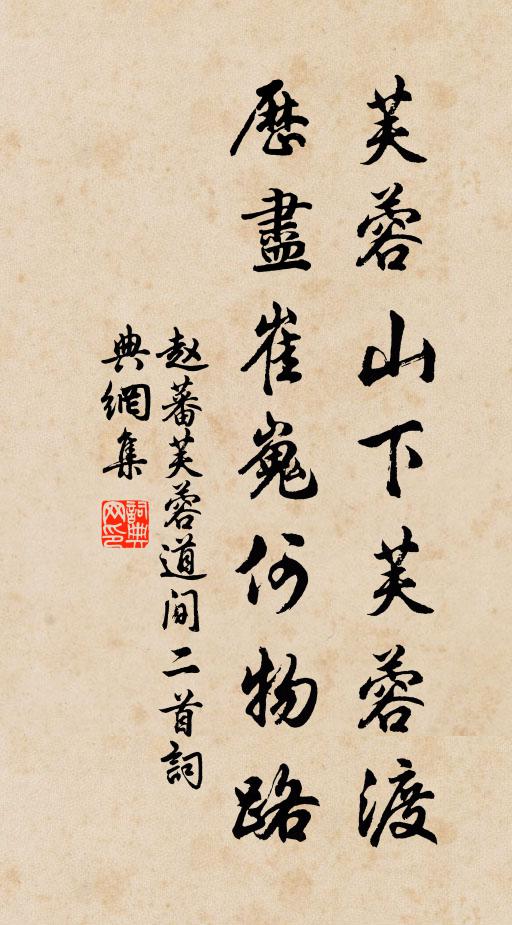 芙蓉山下芙蓉渡
歷盡崔嵬何物路
赵蕃芙蓉道间二首詞
典網集
詞典
网印